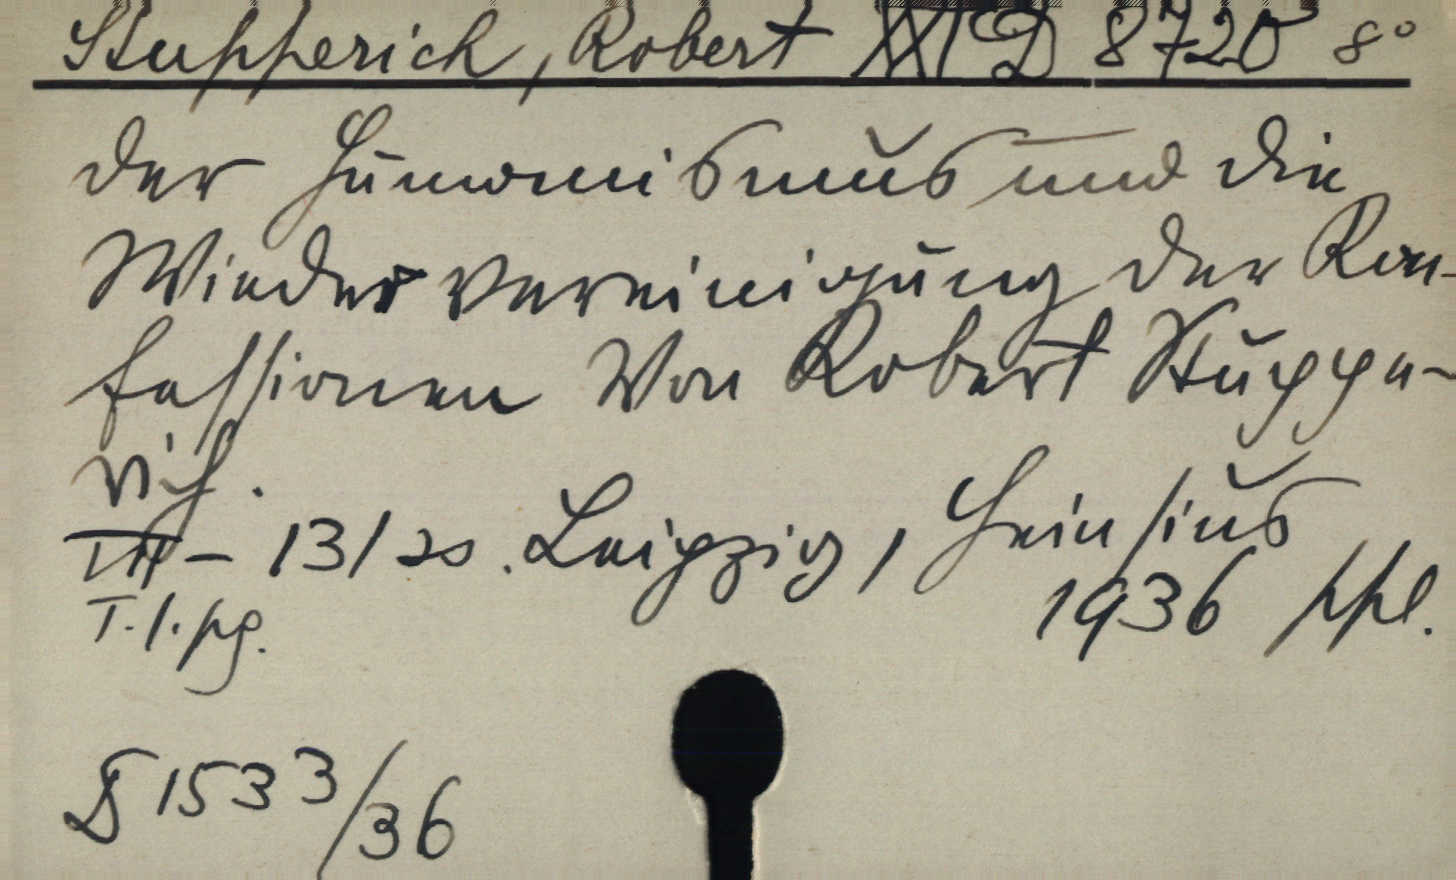 Stupperich, Robert XXI D 8720 8°
Der Humanismus und die
Wiedervereinigung der Kon-
fessionen Von Robert Stuppe-
rich.
VII - 131 SS. Leipzig, Heinsius
1936 ppl.
T. 1. pg.
1533/36